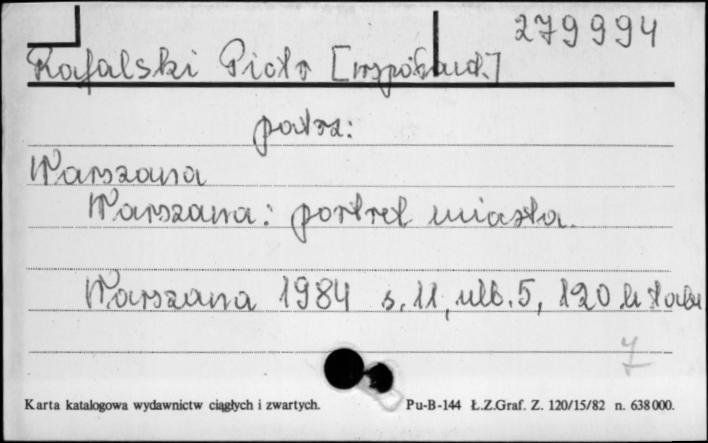 279994
Rafalski Piotr [współaut.]
patrz:
Warszawa
Warszawa: portret miasta.
Warszawa 1984 s. 11, nlb. 5, 120 k. tabl
7
Karta katalogowa wydawnictw ciągłych i zwartych. Pu-B-144 Ł.Z.Graf. Z. 120/15/82 n. 638000.